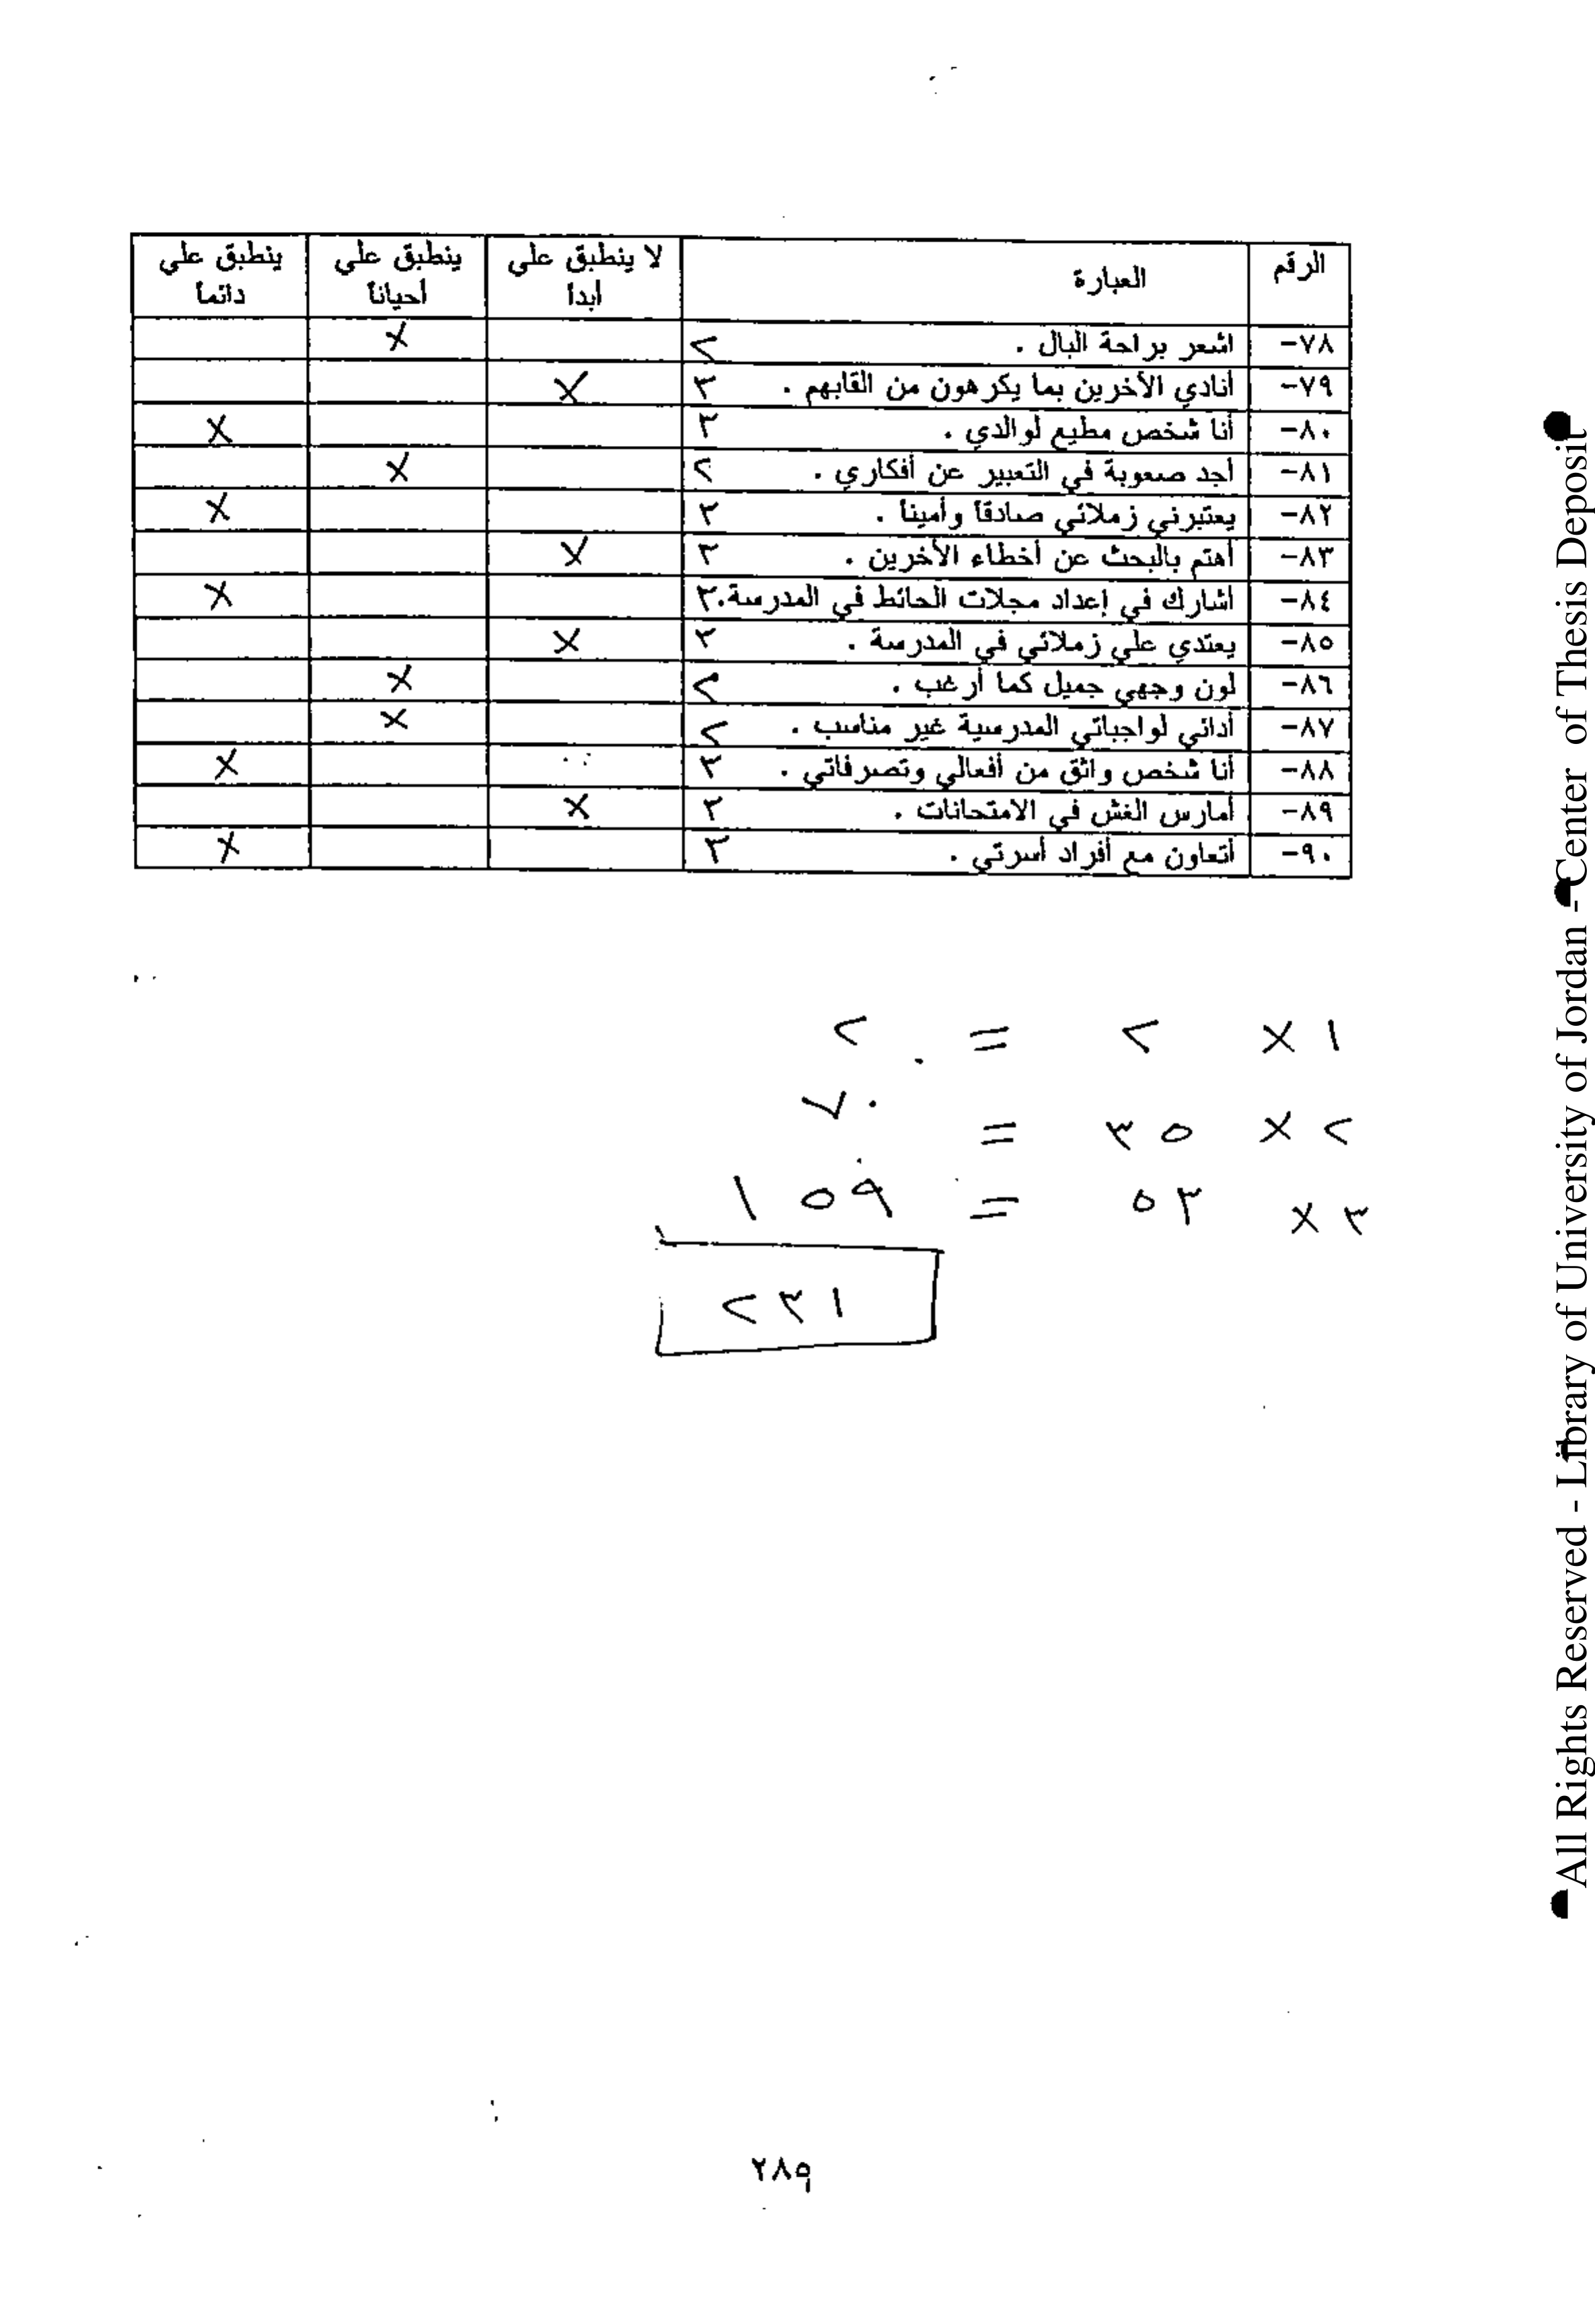 الرقم العبارة لا ينطبق علي أبداً ينطبق علي أحياناً ينطبق علي دائماً
٧٨- اشعر براحة البال . ٢ X
٧٩- أنادي الآخرين بما يكرهون من القابهم . ٣ X
٨٠- أنا شخص مطيع لوالدي . ٣ X
٨١- أجد صعوبة في التعبير عن أفكاري . ٢ X
٨٢- يعتبرني زملائي صادقاً وأميناً . ٣ X
٨٣- أهتم بالبحث عن أخطاء الآخرين . ٣ X
٨٤- أشارك في إعداد مجلات الحائط في المدرسة. ٣ X
٨٥- يعتدي علي زملائي في المدرسة . ٣ X
٨٦- لون وجهي جميل كما أرغب . ٢ X
٨٧- أدائي لواجباتي المدرسية غير مناسب . ٢ X
٨٨- أنا شخص واثق من أفعالي وتصرفاتي . ٣ X
٨٩- أمارس الغش في الامتحانات . ٣ X
٩٠- أتعاون مع أفراد أسرتي . ٣ X
١ × ٢ = ٢
٢ × ٣٥ = ٧٠
٣ × ٥٣ = ١٥٩
٢٣١
٢٨٩
All Rights Reserved - Library of University of Jordan - Center of Thesis Deposit